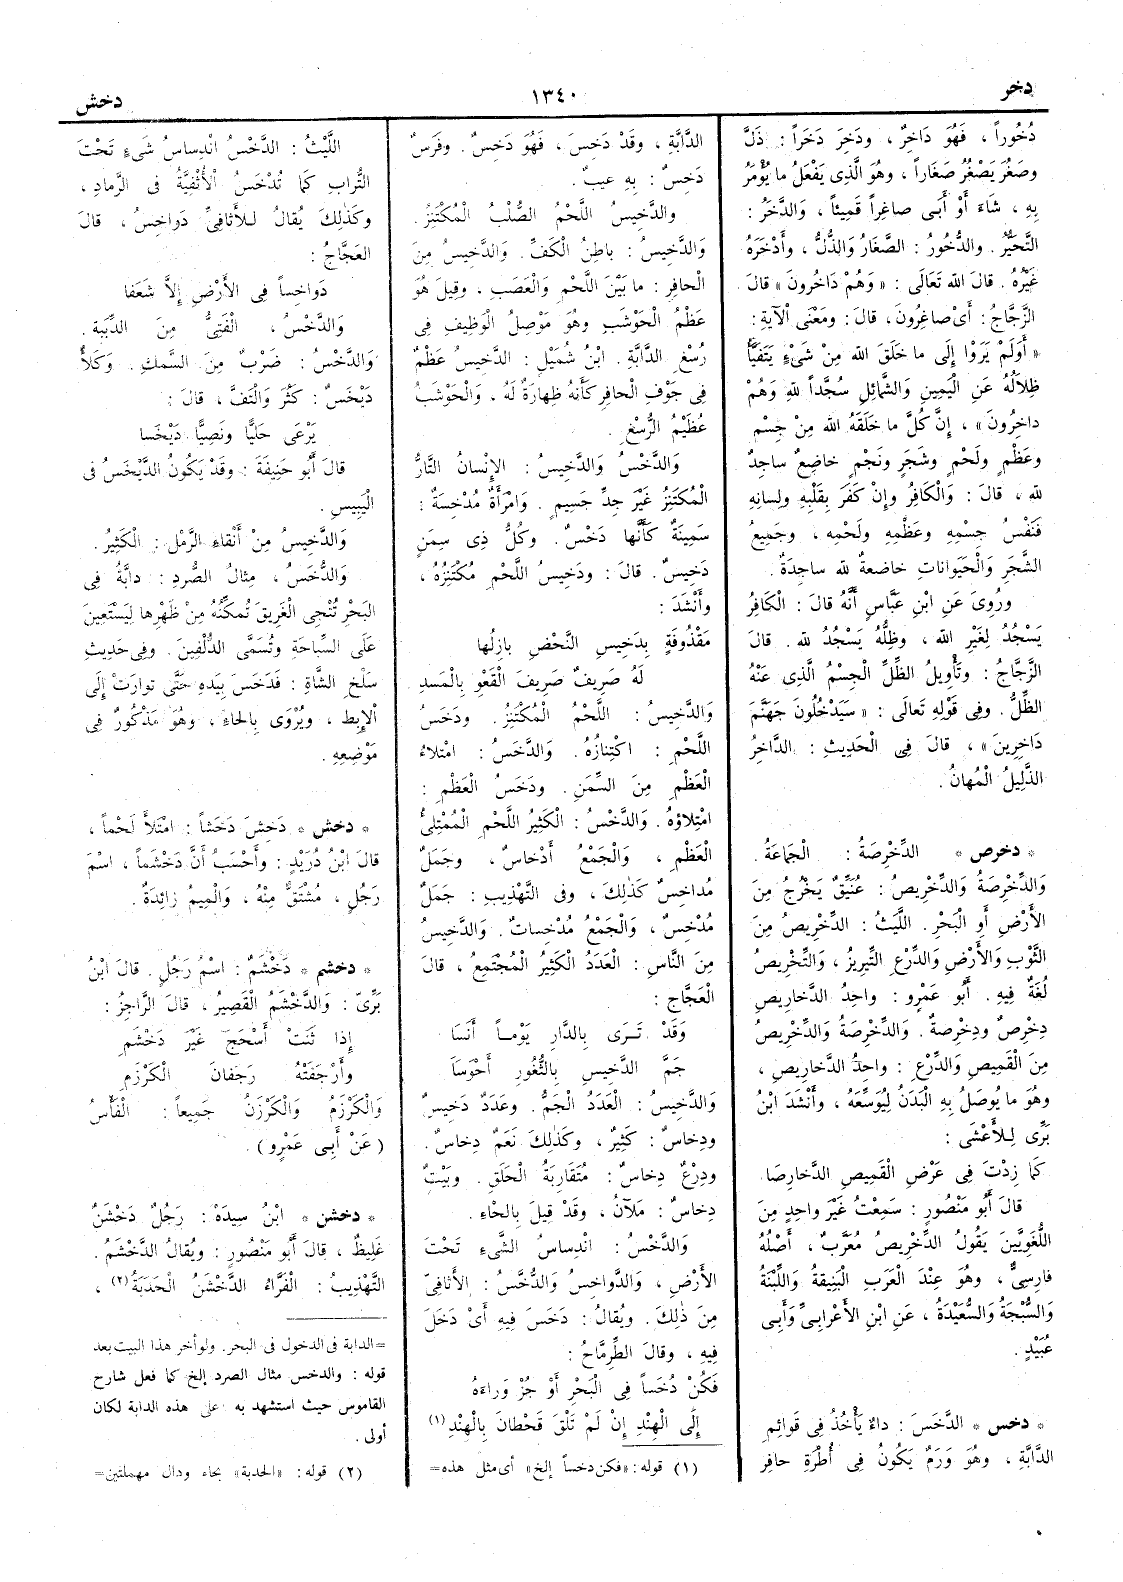 دخر
١٣٤٠
دخش
دُخُوراً ، فَهُوَ دَاخِرٌ ، ودَخِرَ دَخَراً : ذَلَّ
وصَغُرَ يَصْغُرُ صَغَاراً ، وهُوَ الَّذِى يَفْعَلُ ما يُؤْمَرُ
بِهِ ، شَاءَ أَوْ أَبَى صاغِراً قَمِيئاً ، وَالدَّخَرُ :
التَّحَيُّرُ . والدُّخُورُ : الصَّغَارُ وَالذُّلُّ ، وأَدْخَرَهُ
غَيْرُهُ . قالَ الله تَعَالَى : « وَهُمْ دَاخِرُونَ » قالَ
الزَّجَّاجُ : أَىْ صاغِرُونَ ، قالَ : ومَعْنَى الْآيَةِ :
« أَوَلَمْ يَرَوْا إِلَى ما خَلَقَ الله مِنْ شَىْءٍ يَتَفَيَّأُ
ظِلَالُهُ عَنِ الْيَمِينِ وَالشَّمائِلِ سُجَّداً للهِ وَهُمْ
داخِرُونَ » ، إِنَّ كُلَّ ما خَلَقَهُ الله مِنْ جِسْمٍ
وعَظْمٍ ولَحْمٍ وشَجَرٍ ونَجْمٍ خاضِعٌ ساجِدٌ
للهِ ، قالَ : وَالْكافِرُ وإِنْ كَفَرَ بِقَلْبِهِ ولِسانِهِ
فَنَفْسُ جِسْمِهِ وعَظْمِهِ ولَحْمِه ، وجَمِيعُ
الشَّجَرِ وَالْحَيَوَاناتِ خاضعةٌ لله ساجدَةٌ .
ورُوِىَ عَنِ ابْنِ عَبَّاسٍ أَنَّهُ قالَ : الْكافِرُ
يَسْجُدُ لِغَيْرِ الله ، وظِلُّهُ يَسْجُدُ لله . قالَ
الزَّجَّاجُ : وتَأْوِيلُ الظِّلِّ الْجِسْمُ الَّذِى عَنْهُ
الظِّلُّ . وفِى قَوْلِهِ تَعالَى : « سَيَدْخُلُونَ جَهَنَّمَ
دَاخِرِينَ » ، قالَ فِى الْحَدِيثِ : الدَّاخِرُ
الذَّلِيلُ الْمُهانُ .
* دخرص * الدِّخْرِصَةُ : الْجَماعَةُ .
وَالدِّخْرِصَةُ وَالدِّخْرِيصُ : عُنَيِّقٌ يَخْرُجُ مِنَ
الأَرْضِ أَوِ الْبَحْرِ . اللَّيْثُ : الدِّخْرِيصُ مِنَ
الثَّوْبِ وَالأَرْضِ وَالدِّرْعِ التِّيرِيزُ ، وَالتِّخْرِيصُ
لُغَةٌ فِيهِ . أَبُو عَمْرٍو : واحِدُ الدَّخارِيصِ
دِخْرِصٌ ودِخْرِصَةٌ . وَالدِّخْرِصَةُ وَالدِّخْرِيصُ
مِنَ الْقَمِيصِ وَالدِّرْعِ : واحِدُ الدَّخارِيصِ ،
وهُوَ ما يُوصَلُ بِهِ الْبَدَنُ لِيُوَسِّعَهُ ، وأَنْشَدَ ابْنُ
بَرِّى لِلأَعْشَى :
كَمَا زِدْتَ فِى عَرْضِ الْقَمِيصِ الدَّخارِصَا
قالَ أَبُو مَنْصُورٍ : سَمِعْتُ غَيْرَ واحِدٍ مِنَ
اللُّغَوِيِّينَ يَقُولُ الدِّخْرِيصُ مُعَرَّبٌ ، أَصْلُهُ
فارِسِىٌّ ، وهُوَ عِنْدَ الْعَرَبِ الْبَنِيقَةُ وَاللِّبْنَةُ
وَالسُّبْجَةُ وَالسُّعَيْدَةُ ، عَنِ ابْنِ الْأَعْرابِىِّ وَأَبِى
عُبَيْدٍ .
* دخس * الدَّخَسُ : داءٌ يَأْخُذُ فِى قَوائِمِ
الدَّابَّةِ ، وهُوَ وَرَمٌ يَكُونُ فِى أُطْرَةِ حافِرِ
الدَّابَّةِ ، وقَدْ دَخِسَ ، فَهُوَ دَخِسٌ . وفَرَسٌ
دَخِسٌ : بِهِ عيبٌ .
والدَّخِيسُ اللَّحْمُ الصُّلْبُ الْمُكْتَنِزُ .
وَالدَّخِيسُ : باطِنُ الْكَفِّ . وَالدَّخِيسُ مِنَ
الْحافِرِ : ما بَيْنَ اللَّحْمِ وَالْعَصَبِ ، وقِيلَ هُوَ
عَظْمُ الْحَوْشَبِ وهُوَ مَوْصِلُ الْوَظِيفِ فِى
رُسْغِ الدَّابَّةِ . ابْنُ شُمَيْلٍ : الدَّخِيسُ عَظْمٌ
فِى جَوْفِ الْحافِرِ كَأَنَّهُ ظِهارَةٌ لَهُ ، وَالْحَوْشَبُ
عُظَيْمُ الرُّسْغِ .
وَالدَّخْسُ وَالدَّخِيسُ : الإِنْسانُ التَّارُّ
الْمُكْتَنِزُ غَيْرَ جِدِّ جَسِيمٍ . وَامْرَأَةٌ مُدْخِسَةٌ :
سَمِينَةٌ كَأَنَّها دَخْسٌ . وكُلُّ ذِى سِمَنٍ
دَخِيسٌ . قالَ : ودَخِيسُ اللَّحْمِ مُكْتَنِزُهُ ،
وأَنْشَدَ :
مَقْذُوفَةٍ بِدَخِيسِ النَّحْضِ بازِلُها
لَهُ صَرِيفٌ صَرِيفَ الْقَعْوِ بِالْمَسَدِ
وَالدَّخِيسُ : اللَّحْمُ الْمُكْتَنِزُ . ودَخَسُ
اللَّحْمِ : اكْتِنازُهُ . وَالدَّخَسُ : امْتِلاءُ
الْعَظْمِ مِنَ السِّمَنِ . ودَخَسُ الْعَظْمِ :
امْتِلاؤهُ . وَالدَّخْسُ : الْكَثِيرُ اللَّحْمِ الْمُمْتَلِئُ
الْعَظْمِ ، وَالْجَمْعُ أَدْخاسٌ ، وجَمَلٌ
مُداخِسٌ كَذٰلِكَ ، وفى التَّهْذِيبِ : جَمَلٌ
مُدْخَسٌ ، وَالْجَمْعُ مُدْخسات . وَالدَّخِيسُ
مِنَ النَّاسِ : الْعَدَدُ الْكَثِيرُ الْمُجْتَمِعُ ، قالَ
الْعَجَّاج :
وَقَدْ تَرَى بِالدَّارِ يَوْماً أَنَسَا
جَمَّ الدَّخِيسِ بِالثُّغُورِ أَحْوَسَا
وَالدَّخِيسُ : الْعَدَدُ الْجَمُّ . وعَدَدٌ دَخِيسٌ
ودِخاسٌ : كَثِيرٌ ، وكَذٰلِكَ نَعَمٌ دِخاسٌ .
ودِرْعٌ دِخاسٌ : مُتَقارِبَةُ الْحَلَقِ . وبَيْتٌ
دِخاسٌ : مَلآنُ ، وقَدْ قِيلَ بِالْحَاءِ .
وَالدَّخْسُ : انْدِساسُ الشَّىْءِ تَحْتَ
الأَرْضِ ، وَالدَّواخِسُ وَالدُّخَّسُ : الأَثافِىّ
مِنَ ذٰلِكَ . ويُقالُ : دَخَسَ فِيهِ أَىْ دَخَلَ
فِيهِ ، وقالَ الطِّرِمَّاحُ :
فَكُنْ دُخَساً فِى الْبَحْرِ أَوْ جُزْ وَراءَهُ
إِلَى الْهِنْدِ إِنْ لَمْ تَلْقَ قَحْطانَ بِالْهِنْدِ (١)
(١) قوله : «فكن دخساً إلخ» أى مثل هذه =
اللَّيْثُ : الدَّخْسُ انْدِساسُ شَىْءٍ تَحْتَ
التُّرابِ كَمَا تُدْخَسُ الْأُثْفِيَّةُ فِى الرَّمادِ ،
وكَذٰلِكَ يُقالُ لِلأَثافِىِّ دَواخِسُ ، قالَ
العَجَّاجُ :
دَواخِساً فِى الأَرْضِ إِلاَّ شَعَفا
وَالدَّخْسُ ، الْفَتِىُّ مِنَ الدِّبَبَة .
وَالدَّخْسُ : ضَرْبٌ مِنَ السَّمَكِ . وَكَلأٌ
دَيْخَسٌ : كَثُرَ وَالْتَفَّ ، قالَ :
يَرْعَى حَلِيًّا ونَصِيًّا دَيْخَسا
قالَ أَبُو حَنِيفَةَ : وقَدْ يَكُونُ الدَّيْخَسُ فى
الْيَبِيسِ .
وَالدَّخِيسُ مِنْ أَنْقاءِ الرَّمْلِ : الْكَثِيرُ .
وَالدُّخَسُ ، مِثالُ الصُّرَدِ : دابَّةٌ فِى
البَحْرِ تُنْجِى الْغَرِيقَ تُمَكِّنُهُ مِنْ ظَهْرِها لِيَسْتَعِينَ
عَلَى السِّباحَةِ وتُسَمَّى الدُّلْفِينَ . وفِى حَدِيثِ
سَلْخِ الشَّاةِ : فَدَخَسَ بِيَدِهِ حَتَّى تَوارَتْ إِلَى
الْإِبِطِ ، ويُرْوَى بِالحاءِ ، وهُوَ مَذْكُورٌ فِى
مَوْضِعِهِ .
* دخش * دَخِشَ دَخَشاً : امْتَلَأَ لَحْماً ،
قالَ ابْنُ دُرَيْدٍ : وأَحْسَبُ أَنَّ دَخْشَماً ، اسْمَ
رَجُلٍ ، مُشْتَقٌّ مِنْهُ ، وَالْمِيمُ زائِدَةٌ .
* دخشم * دَخْشَمٌ : اسْمُ رَجُلٍ . قالَ ابْنُ
بَرِّىّ : وَالدَّخْشَمُ الْقَصِيرُ ، قالَ الرَّاجِزُ :
إِذا ثَنَتْ أَسْحَجَ غَيْرَ دَخْشَمِ
وأَرْجَفَتْهُ رَجَفانَ الْكَرْزَمِ
وَالْكَرْزَمُ وَالْكَرْزَنُ جَمِيعاً : الْفَأْسُ
( عَنْ أَبِى عَمْرٍو ) .
* دخشن * ابْنُ سِيدَهْ : رَجُلٌ دَخْشَنٌ
غَلِيظٌ ، قالَ أَبُو مَنْصُورٍ : ويُقالُ الدَّخْشَمُ .
التَّهْذِيبُ : الْفَرَّاءُ الدَّخْشَنُ الْحَدَبَةُ (٢) ،
= الدابة فى الدخول فى البحر . ولو أخر هذا البيت بعد
قوله : والدخس مثال الصرد إلخ كما فعل شارح
القاموس حيث استشهد به على هذه الدابة لكان
أولى .
(٢) قوله : «الحدبة» بحاء ودال مهملتين =